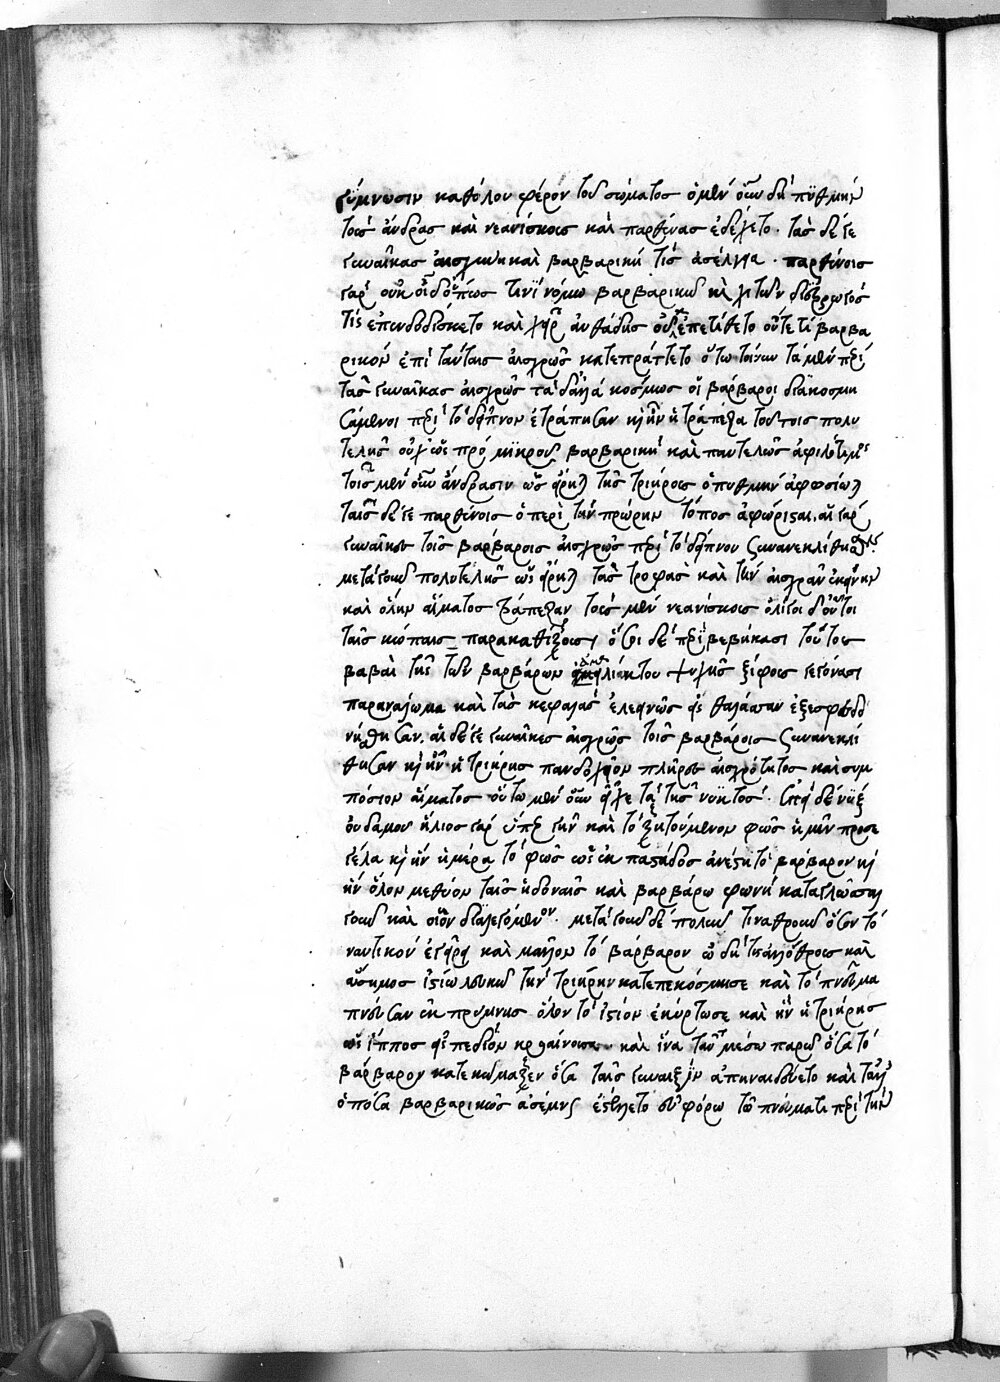 γύμνωσιν καθόλου φέρον τοῦ σώματος ὁ μὲν οὖν δὴ πυθμὴν
τοὺς ἄνδρας καὶ νεανίσκους καὶ παρθένας ἐδέχετο. τὰς δέ γε
γυναῖκας αἰσχύνη καὶ βαρβαρική τις ἀσέλγεια. παρθένοις
γὰρ οὐκ οἶδ' ὅπως τινὶ νόμω βαρβαρικῶ καὶ χιτὼν
τις ἐπενδεδίσκετο καὶ χεὶρ αὐθάδης οὐκ ἐπετίθετο οὔτε τι βαρβα
ρικὸν ἐπὶ ταύταις αἰσχρῶς κατεπράττετο οὕτω τοίνυν τὰ μὲν περὶ
τὰς γυναῖκας αἰσχρῶς τὰ δ' ἀλλὰ κοσμίως οἱ βάρβαροι διακοσμη
σάμενοι περὶ τὸ δεῖπνον ἐτράπησαν καὶ ἦν ἡ τράπεζα τούτοις πολυ
τελὴς οὐχ ὡς πρὸ μικροῦ βαρβαρικὴ καὶ παντελῶς ἀφιλότιμος
τοῖς μὲν οὖν ἄνδρασιν ὡς εἴρηται τῆς τριήρους ὁ πυθμὴν ἀφωσίωται
ταῖς δέ γε παρθένοις ὁ περὶ τὴν πρώρην τόπος ἀφώρισται. αἱ γὰρ
γυναῖκες τοῖς βαρβάροις αἰσχρῶς περὶ τὸ δεῖπνον συνανεκλίθησαν
μετὰ γοῦν πολυτελεῖς ὡς εἴρηται τὰς τροφὰς καὶ τὴν αἰσχρὰν ἐκείνην
καὶ ὅλην αἵματος τράπεζαν τοὺς μὲν νεανίσκους ὀλίγοι δ' οὗτοι
ταῖς κώπαις παρακαθίζουσι, ὅσοι δὲ περιβεβήκασι τούτοις
βαβαὶ τῆς τῶν βαρβάρων ψυχῆς ξίφους γεγόνασι
παρανάλωμα καὶ τὰς κεφαλὰς ἐλεεινῶς εἰς θάλασσαν ἐξεσφενδο
νήθησαν. αἱ δέ γε γυναῖκες αἰσχρῶς τοῖς βαρβάροις συνανεκλί
θησαν καὶ ἦν ἡ τριήρης πανδοχεῖον πλῆρες αἰσχρότητος καὶ συμ
πόσιον αἵματος οὕτω μὲν οὖν εἶχε τὰ τῆς νυκτός. ἐπεὶ δὲ νὺξ
οὐδαμοῦ ἥλιος γὰρ ὑπὲρ γῆν καὶ τὸ ζητούμενον φῶς ἡμῖν προσε
γέλα καὶ ἦν ἡμέρα τὸ φῶς ὡς ἐκ παστάδος ἀνέστη τὸ βάρβαρον καὶ
ἦν ὅλον μεθύον ταῖς ἡδοναῖς καὶ βαρβάρω φωνῆ καταγλωττίζον
γοῦν καὶ οἷον διαλεγόμενον. μετὰ γοῦν δὲ πολὺν τινα θροῦν ὅσον τὸ
ναυτικὸν ἐγείρει καὶ μᾶλλον τὸ βάρβαρον ὧδή τις ἀλλόθρους καὶ
ἄσημος ἱστίω λευκῶ τὴν τριήρην κατεπεκόσμησε καὶ τὸ πνεῦμα
πνεῦσαν ἐκ πρύμνης ὅλον τὸ ἱστίον ἐκύρτωσε καὶ ἦν ἡ τριήρης
ὡς ἵππος εἰς πεδίον κροαίνουσα καὶ ἵνα τἀν μέσω παρῶ ὅσα τὸ
βάρβαρον κατεκώμαζεν ὅσα ταῖς γυναιξὶν ἀπηναιδεύετο καὶ τἆλλ'
ὁπόσα βαρβαρικῶς ἀσέμνως ἐστέλλετο συμφόρω τῶ πνεύματι περὶ τὴν